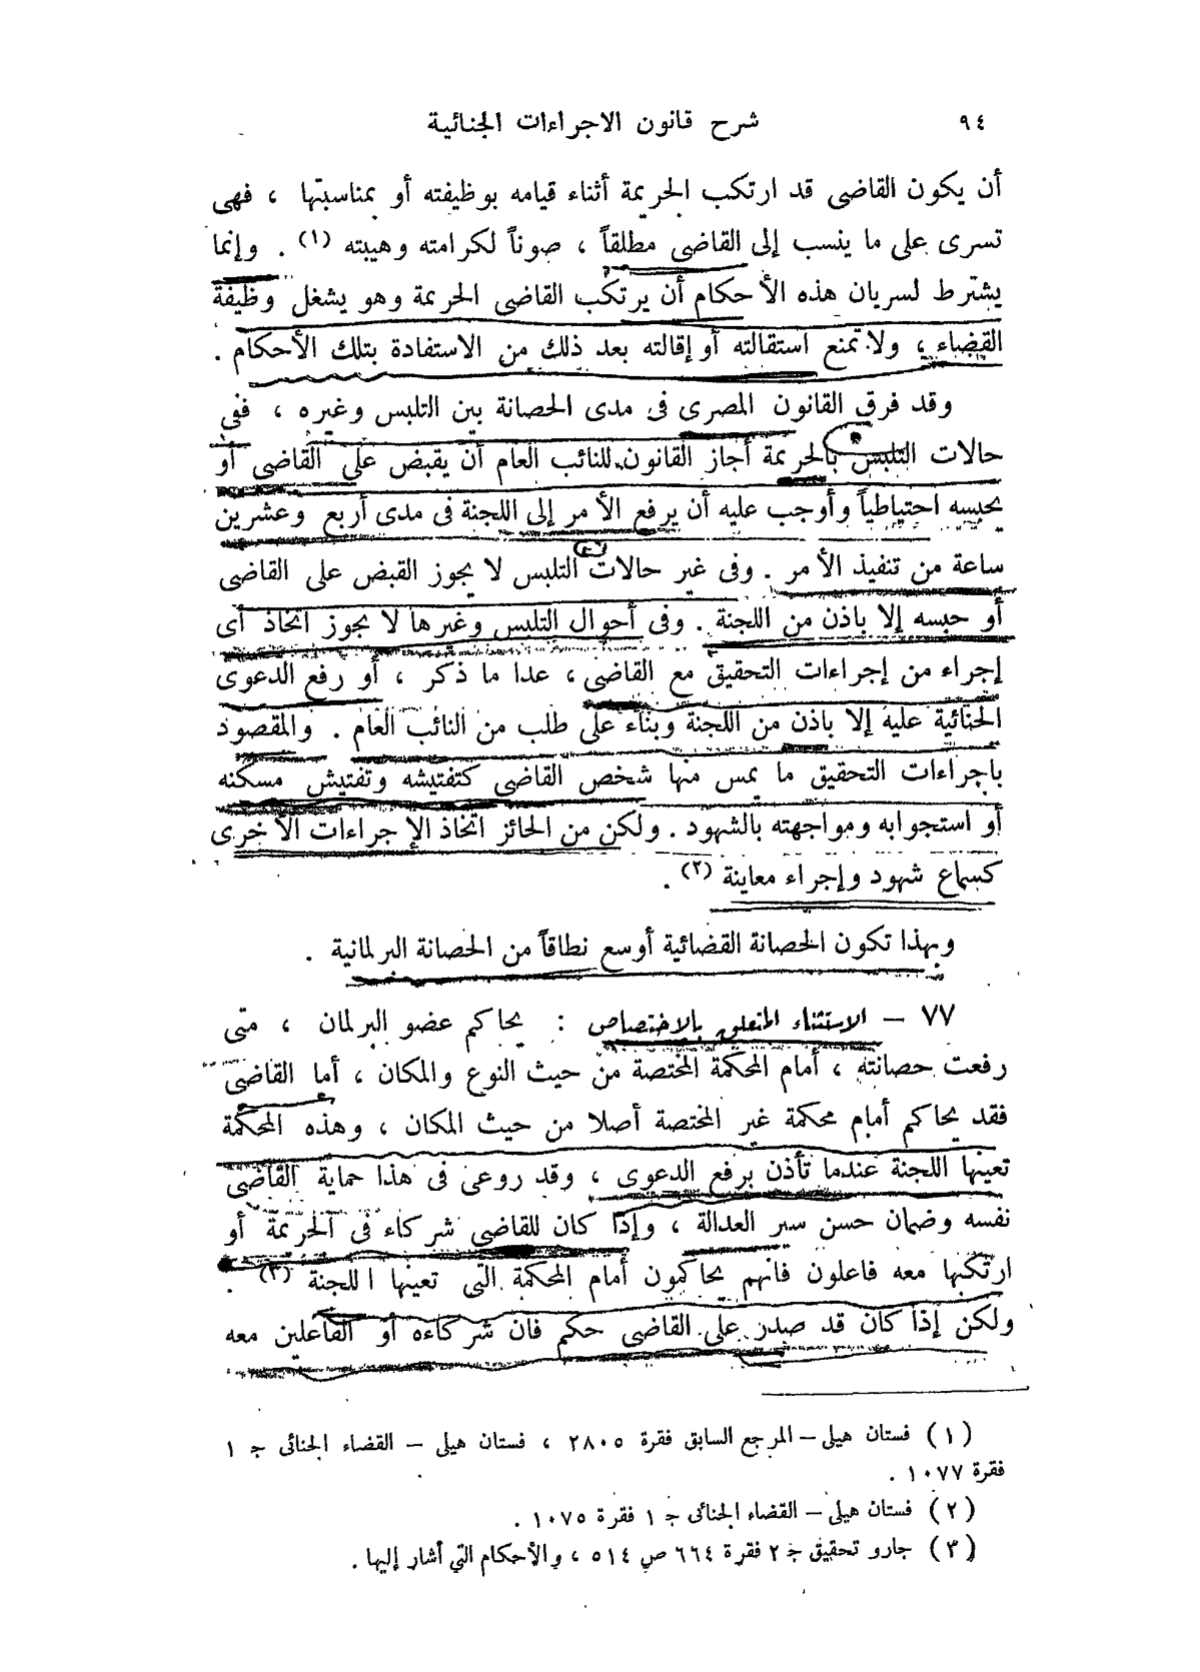 ٩٤ شرح قانون الاجراءات الجنائية
أن يكون القاضى قد ارتكب الجريمة أثناء قيامه بوظيفته أو بمناسبتها ، فهى
تسرى على ما ينسب إلى القاضى مطلقاً ، صوناً لكرامته وهيبته (١) . وإنما
يشترط لسريان هذه الأحكام أن يرتكب القاضى الجريمة وهو يشغل وظيفة
القضاء ، ولا تمنع استقالته أو إقالته بعد ذلك من الاستفادة بتلك الأحكام .
وقد فرق القانون المصرى فى مدى الحصانة بين التلبس وغيره ، ففى
حالات التلبس بالجريمة أجاز القانون للنائب العام أن يقبض على القاضى أو
يحبسه احتياطياً وأوجب عليه أن يرفع الأمر إلى اللجنة فى مدى أربع وعشرين
ساعة من تنفيذ الأمر . وفى غير حالات التلبس لا يجوز القبض على القاضى
أو حبسه إلا باذن من اللجنة . وفى أحوال التلبس وغيرها لا يجوز اتخاذ أى
إجراء من إجراءات التحقيق مع القاضى ، عدا ما ذكر ، أو رفع الدعوى
الجنائية عليه إلا باذن من اللجنة وبناء على طلب من النائب العام . والمقصود
باجراءات التحقيق ما يمس منها شخص القاضى كتفتيشه وتفتيش مسكنه
أو استجوابه ومواجهته بالشهود . ولكن من الجائز اتخاذ الإجراءات الأخرى
كسماع شهود وإجراء معاينة (٢) .
وبهذا تكون الحصانة القضائية أوسع نطاقاً من الحصانة البرلمانية .
٧٧ – الاستثناء المتعلق بالاختصاص : يحاكم عضو البرلمان ، متى
رفعت حصانته ، أمام المحكمة المختصة من حيث النوع والمكان ، أما القاضى
فقد يحاكم أمام محكمة غير المختصة أصلا من حيث المكان ، وهذه المحكمة
تعينها اللجنة عندما تأذن برفع الدعوى ، وقد روعى فى هذا حماية القاضى
نفسه وضمان حسن سير العدالة ، وإذا كان للقاضى شركاء فى الجريمة أو
ارتكبها معه فاعلون فانهم يحاكمون أمام المحكمة التى تعينها اللجنة (٣) .
ولكن إذا كان قد صدر على القاضى حكم فان شركاءه أو الفاعلين معه
(١) فستان هيلى – المرجع السابق فقرة ٢٨٠٥ ، فستان هيلى – القضاء الجنائى ج ١
فقرة ١٠٧٧ .
(٢) فستان هيلى – القضاء الجنائى ج ١ فقرة ١٠٧٥ .
(٣) جارو تحقيق ج ٢ فقرة ٦٦٤ ص ٥١٤ ، والأحكام التي أشار إليها .